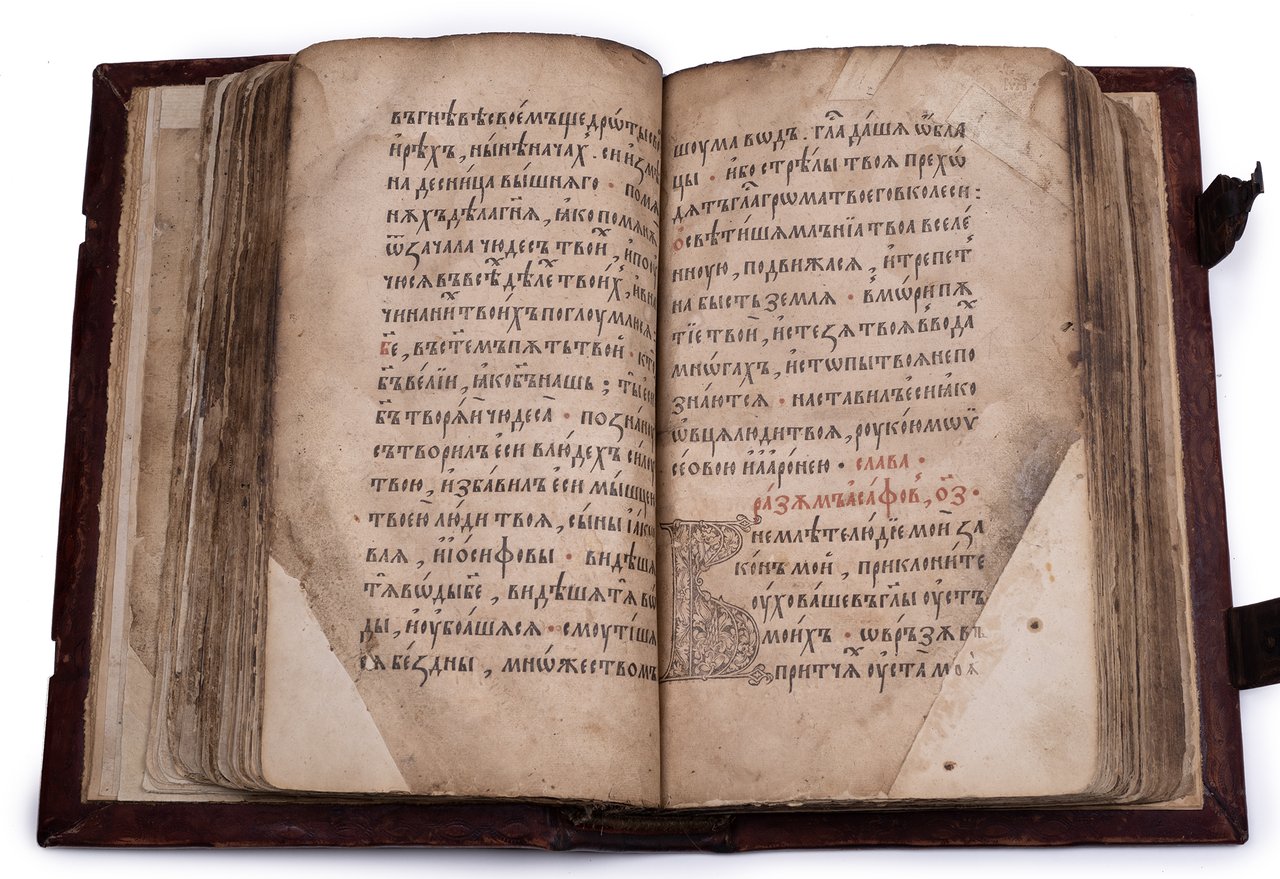 въгнѣвѣсвоемъщедрѡты
и҆рѣхъ, ны́нѣначахⷪ. сиꙗ҆ꙁмѣ
на десни́ца вы́шнѧго · помѧ
нѧхъдѣлагн҃ѧ, ꙗ҆́ко помѧнѧ
ѿꙁачала чюдесъ твоиⷯ, и҆по
чюсѧвъвсѣⷯ дѣлеⷯ твои́хⷪ, и҆вна
чинаниⷯ твои́хъпоглоумлюсѧ:
б҃е, въст҃емъпѫтьтвои҆ · кто
б҃ъве́лїи, ꙗ҆кобⷢ҇ънашь ; ты̀еси
б҃ътворѧ́и чюдеса̀ · поꙁна́
сътворилъ є҆си влю́дехъ си́лоу
твою̀, и҆ꙁба́вилъ є҆си мы́шцею
твое́ю лю́ди твоѧ, сы́ны і҆а́ко
влѧ, и҆і҆о́сифовы · видѣшѧ
тѧ̀ во́дыб҃е, видѣшѧтѧ̀ вѡ
ды, и҆оу҆боѧ́шѧсѧ · смоути́шѧ
сѧ бе́ꙁдны, мнѡ́жествомъ
шоума вѡдъ. гла́ⷭ да́шѧ ѡ҆́бла
цы · и҆́бо стрѣ́лы твоѧ̀ прехѡ́
дѧтъ гла́ⷭ грѡматвоеговколеси :
ѡ҆свѣти́шѧмлънїѧ твоа вселе́
нноую, подвижасѧ, и҆трепетⷪ
на бысть ꙁемлѧ · вмо́ри пѫ
тїе твои҆, и҆стеꙁѧ твоѧ̀ ввода́ⷯ
мнѡ́гахъ, и҆стѡпы̀ твоѧ̀ непо
ꙁна́ютсѧ · наставилъ є҆си ꙗ҆ко
ѡ҆́вцѧ лю́ди твоѧ, роуко́ю мѡѷ
се́ѡвою и҆ а҆арѡ́нею · слава ·
ра́ꙁѫмъ а҆са́фовⷪ, о҃ꙁ ·
Внемлѣте лю́дїе мои̂ ꙁа
ко́нъ мои̂, приклони́те
оу҆́хо ва́ше въ гл҃ы оу҆стъ
мои́хъ · ѿврь́ꙁѫ въ
при́тчѧⷯ оу҆ста̀ моѧ̀